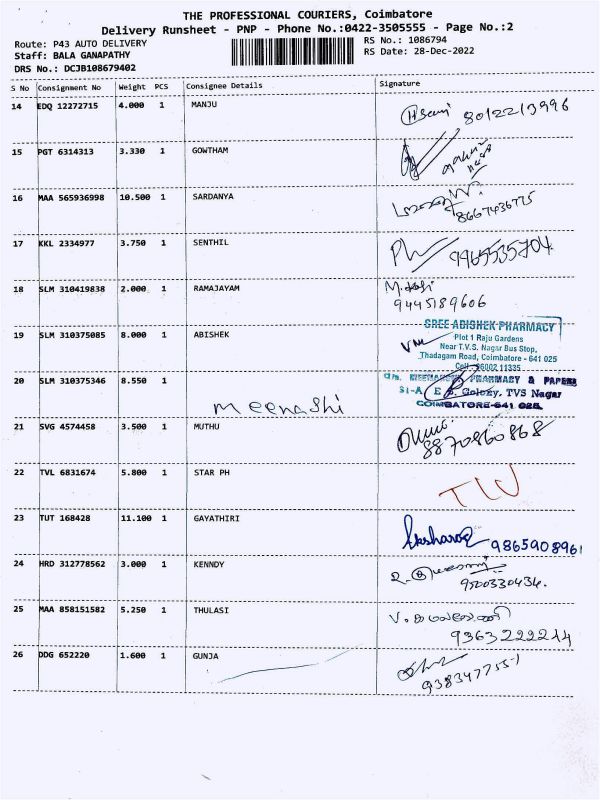 THE PROFESSIONAL COURIERS, Coimbatore
Delivery Runsheet - PNP - Phone No.:0422-3505555 - Page No.:2
Route: P43 AUTO DELIVERY
RS No.: 1086794
Staff: BALA GANAPATHY
RS Date: 28-Dec-2022
DRS No.: DCJB108679402
S No Consignment No Weight PCS Consignee Details Signature
14 EDQ 12272715 4.000 1 MANJU
15 PGT 6314313 3.330 1 GOWTHAM
16 MAA 565936998 10.500 1 SARDANYA
8667436775
17 KKL 2334977 3.750 1 SENTHIL
9965535704
18 SLM 310419838 2.000 1 RAMAJAYAM
9445189606
19 SLM 310375085 8.000 1 ABISHEK
SREE ABISHEK PHARMACY
Plot 1 Raju Gardens
Near T.V.S. Nagar Bus Stop,
Thadagam Road, Coimbatore - 641 025
Cell : 96002 11335
20 SLM 310375346 8.550 1 Meenashi
PHARMACY & PAPERS
Colony, TVS Nagar
COIMBATORE-641 025.
21 SVG 4574458 3.500 1 MUTHU
8870860868
22 TVL 6831674 5.800 1 STAR PH
23 TUT 168428 11.100 1 GAYATHIRI
9865908961
24 HRD 312778562 3.000 1 KENNDY
9500330434.
25 MAA 858151582 5.250 1 THULASI
9363222214
26 DDG 652220 1.600 1 GUNJA